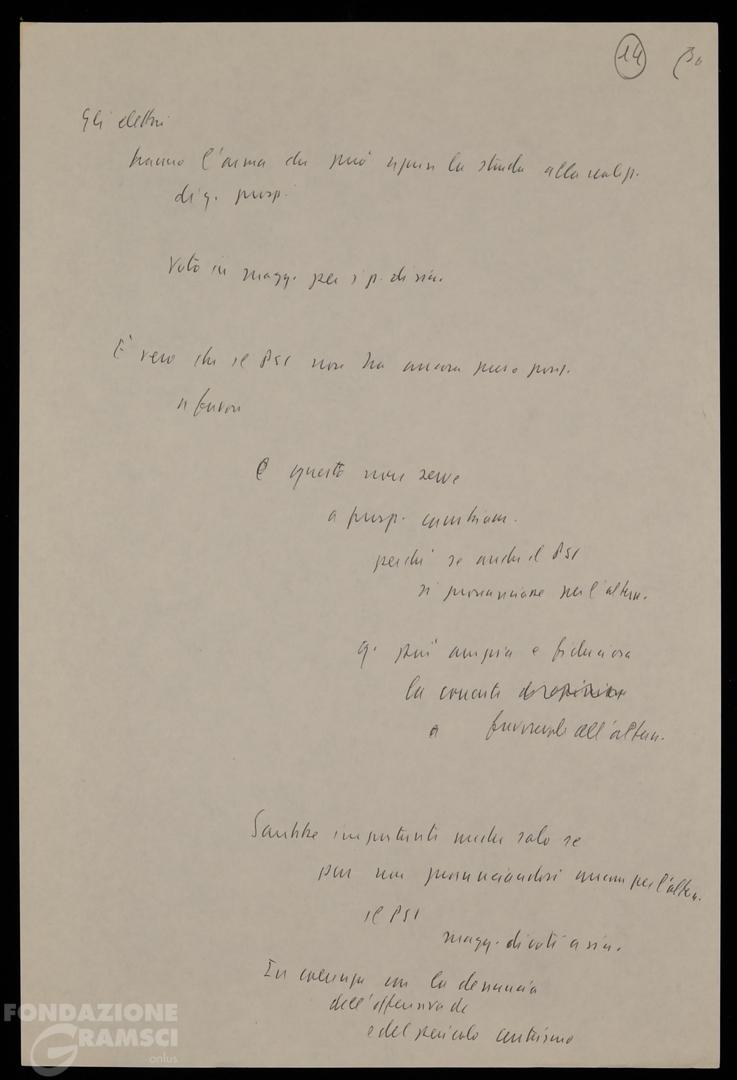 14 (30
Gli elettori
hanno l'arma che può aprire la strada alla realizz.
di q. prosp.
Voto in magg. per i p. di sin.
È vero che il PSI non ha ancora preso posiz.
a favore
e questo non serve
a prosp. cambiam.
perché se anche il PSI
si pronunciasse per l'altern.
più ampia e fiduciosa
la corrente
a favorevole all'altern.
Sarebbe importante anche solo se
pur non pronunciandosi ancora per l'altern.
il PSI
magg. di voti a sin.
In coerenza con la denuncia
dell'offensiva dc
e del pericolo centrismo
FONDAZIONE
GRAMSCI
onlus